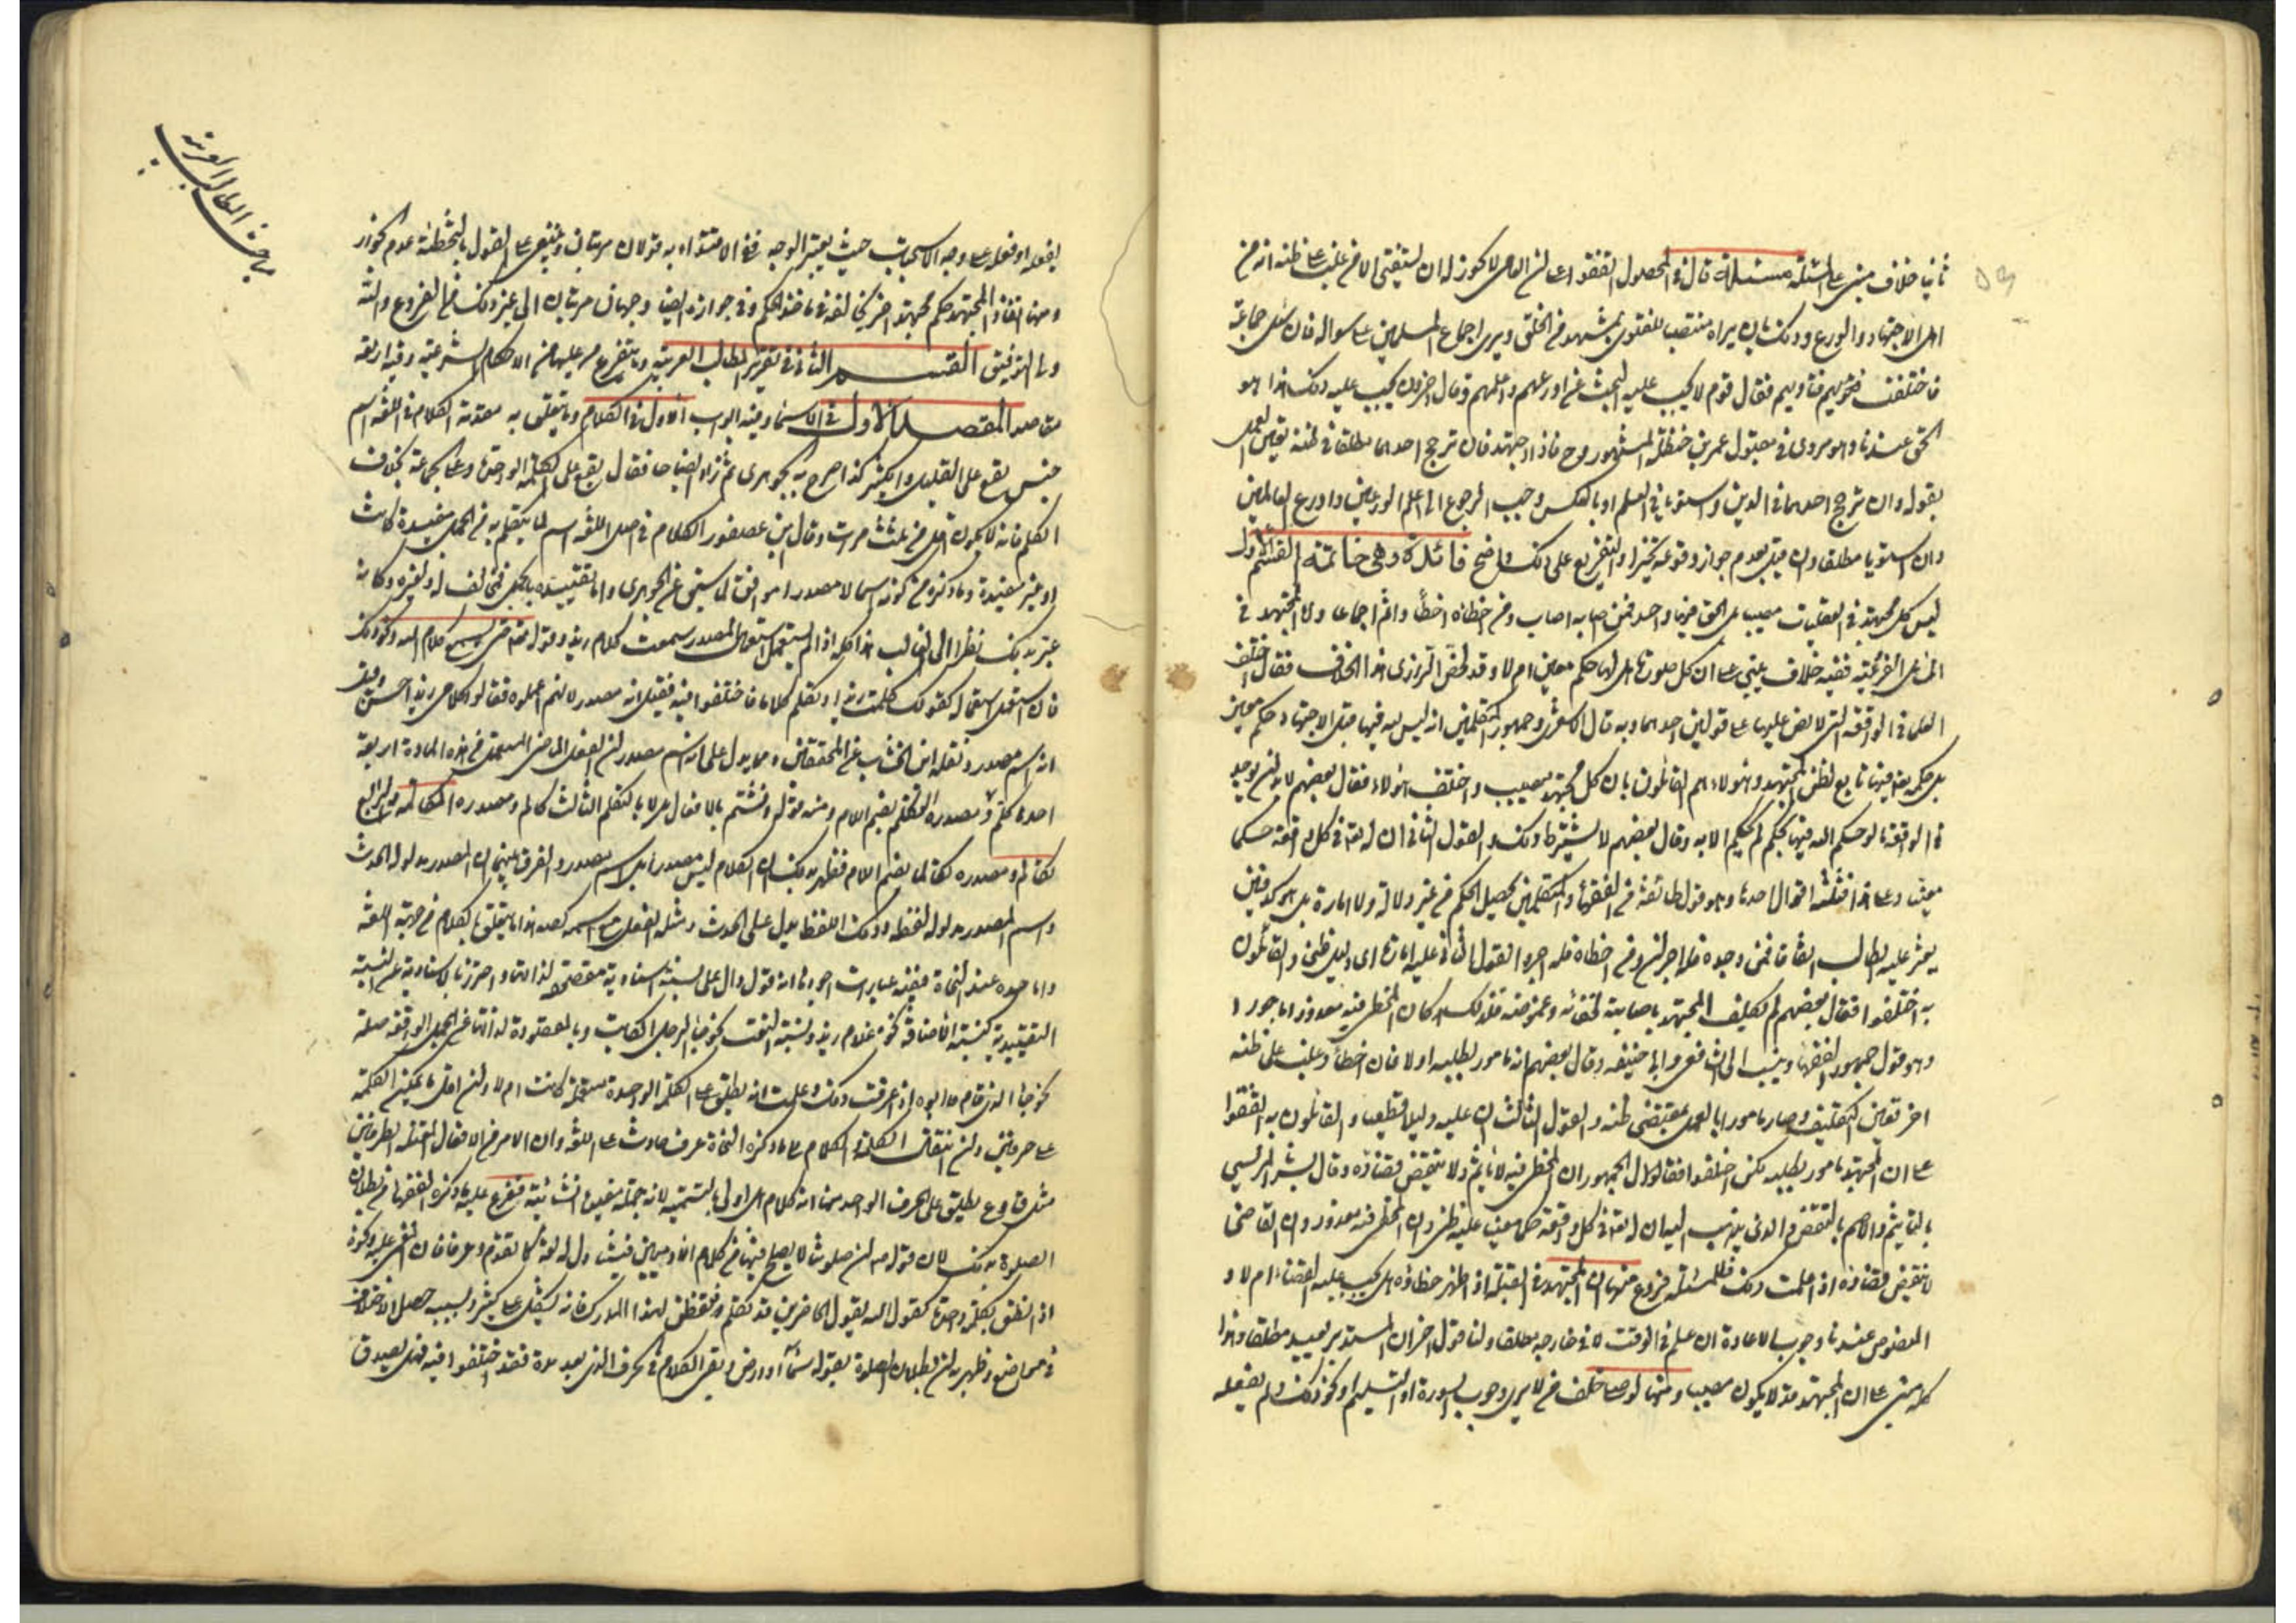 ثانيا خلاف مبنى على المسئلة مسئلة قال فى المحصول اتفقوا على ان العامى لا يجوز له ان يستفتى الا من غلب على ظنه انه من
اهل الاجتهاد والورع وذلك بان يراه منتصب للفتوى بمشهد من الخلق ويرى اجتماع المسلمين على سؤاله فان سئل جماعة
فاختلفت فتاويهم فقال قوم لا يجب عليه البحث عن اورعهم واعلمهم وقال اخرون يجب عليه ذلك وهذا هو
الحق عندنا وهو مروى فى مقبول عمر بن حنظلة المشهور وح فاذا اجتهد فان ترجح احدهما مطلقا فى ظنه تعين العمل
بقوله وان ترجح احدهما فى الدين واستويا فى العلم او بالعكس وجب الرجوع الى اعلم الورعين واورع العالمين
وان استويا مطلقا وان قيل بعدم جواز وقوعه تخير والتفريع على ذلك واضح فائدة وهى خاتمة القسم الاول
ليس كل مجتهد فى العقليات مصيب بل الحق فيها واحد فمن اصابه اصاب ومن اخطاه اخطأ واثم اجماعا واما المجتهد فى
المسائل الفرعية ففيه خلاف يبتنى على ان كل صورة هل لها حكم معين ام لا وقد لخص الرازى هذا الخلاف فقال اختلف
العلماء فى الواقعة التى لا نص عليها على قولين احدهما وبه قال الاشعرى وجمهور المتكلمين انه ليس لله فيها قبل الاجتهاد حكم معين
بل حكم الله فيها تابع لظن المجتهد وهؤلاء هم القائلون بان كل مجتهد مصيب واختلف هؤلاء فقال بعضهم لا بد ان يوجد
فى الواقعة ما لو حكم الله فيها بحكم لم يحكم الا به وقال بعضهم لا يشترط ذلك والقول الثانى ان له تعالى فى كل واقعة حكما
معينا وعلى هذا فثلثة اقوال احدها وهو قول طائفة من الفقهاء والمتكلمين يحصل الحكم من غير دلالة ولا امارة بل هو كدفين
يعثر عليه الطالب اتفاقا فمن وجده فله اجران ومن اخطاه فله اجر والقول الثانى عليه امارة اى دليل ظنى والقائلون
به اختلفوا فقال بعضهم لم يكلف المجتهد باصابته لخفائه وغموضه فلذلك كان المخطى فيه معذورا ماجورا
وهو قول جمهور الفقهاء وينسب الى الشافعى وابى حنيفه وقال بعضهم انه مامور بطلبه اولا فان اخطأ وغلب على ظنه
اخر تعين التكليف وصار مامورا بالعمل بمقتضى ظنه والقول الثالث ان عليه دليلا قطعيا والقائلون به اتفقوا
على ان المجتهد مامور بطلبه لكن اختلفوا فقال الجمهور ان المخطى فيه لا ياثم ولا ينقض قضاؤه وقال بشر المريسى
بالتاثيم والاصم بالنقض والذى يذهب اليه ان له تعالى فى كل واقعة حكما معينا عليه ظنى وان المخطى فيه معذور وان القاضى
لا ينقض قضاؤه اذا علمت ذلك فللمسئلة فروع منها ان المجتهد فى القبلة اذا ظهر خطاؤه هل يجب عليه القضاء ام لا و
المنصوص عندنا وجوب الاعادة ان علم فى الوقت لا فى خارجه مطلقا ولنا قول اخر ان المستدبر يعيد مطلقا وهذا
كله مبنى على ان المجتهد قد لا يكون مصيبا ومنها لو صلى خلف من لا يرى وجوب السورة او التسليم او نحو ذلك ولم يفعله
يفعله او فعله على وجه الاستحباب حيث يعتبر الوجه ففى الاقتداء به قولان مرتبان وينبغى على القول بالتخطئة عدم الجواز
ومنها انفاذ المجتهد حكم مجتهد اخر يخالفه فى ماخذ الحكم وفى جوازه ايضا وجهان مرتبان الى غير ذلك من الفروع والله
ولى التوفيق القسم الثانى فى تقرير المطالب العربية وما يتفرع عليها من الاحكام الشرعية وفيه اربعة
مقاصد المقصد الاول فى الاسماء وفيه ابواب الاول فى الكلام وما يتعلق به مقدمة الكلام فى اللغة اسم
جنس يقع على القليل والكثير كذا صرح به الجوهرى ثم زاد ايضاحا فقال يقع على الكلمة الواحدة وعلى الجماعة بخلاف
الكلم فانه لا يكون اقل من ثلث مرات وقال ابن عصفور الكلام فى اصل اللغة اسم لما يتكلم به من الجمل مفيدة كانت
او غير مفيدة وما ذكره من كونه اسما لا مصدرا موافق لما سبق عن الجوهرى واما تقييده بالجمل فمخالف له ولغيره وكانه
عبر بذلك نظرا الى الغالب هذا كله اذا لم يستعمل استعمال المصدر سمعت كلام زيد وقوله تعالى حتى يسمع كلام الله ونحو ذلك
فان استعمل استعماله كقولك كلمت زيدا وتكلم كلاما فاختلفوا فيه فقيل انه مصدر لانهم اعملوه فقالوا كلامى زيدا حسن وقيل
انه اسم مصدر ونقله ابن الخشاب عن المحققين ومما يدل على انه اسم مصدر ان الفعل الماضى المستعمل من هذه المادة اربعة
احدها كلم ومصدره التكلم بضم اللام ومنه قولى ونشتم بالافعال لا بالتكلم الثالث كالم ومصدره المكالمة الرابع
تكالم ومصدره تكالما بضم اللام فظهر بذلك ان الكلام ليس مصدرا بل اسم مصدر والفرق بينهما ان المصدر مدلوله الحدث
واسم المصدر مدلوله لفظ وذلك اللفظ يدل على الحدث هذا ما يتعلق بالكلام من جهة اللغة
واما حده عند النحاة ففيه عبارات اجودها انه قول دال على نسبة اسنادية مقصودة لذاتها واحترزنا بالاسنادية عن النسبة
التقييدية كنسبة الاضافة نحو غلام زيد ونسبة النعت نحو جاء الرجل الكاتب وبالمقصودة لذاتها عن الجمل الواقعة صلة
نحو جاء الذى قام ابوه اذا عرفت ذلك وعلمت انه يطلق على الكلمة الواحدة مستعملة كانت ام لا وان اقل ما تمكين الكلمة
على حرفين وان انتقال الكلمة والكلام على ما ذكره النحاة عرف حادث على اللغة وان الامر من الافعال المعتلة الطرفين
مثل ق و ع يطلق على الحرف الواحد منها انه كلام بل اولى بالتسمية لانه جملة مفيدة انشائية فيتفرع عليه ما ذكره الفقهاء من بطلان
الصلوة بذلك لان قوله ان صلوتنا لا يصلح فيها من كلام الادميين
اذا نطق بكلمة واحدة كقول الله يقول الحاضرين قد تكلم وتفطن لهذا المدرك فانه يشكل على كثير وبسببه حصل الاختلاف
فى مواضع وظهر به ان بطلان الصلوة بقوله سماء او ارض وبقى الكلام فى الحرف الذى بعد مدة فقد اختلفوا فيه فهل يصدق
المطالب العربية